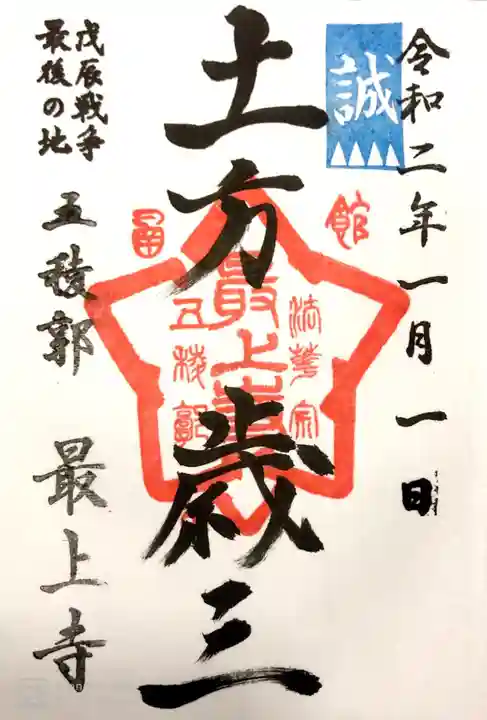 令和二年一月一日
誠
土方歳三
函館
法華宗
最上寺
五稜郭
戊辰戦争
最後の地
五稜郭 最上寺